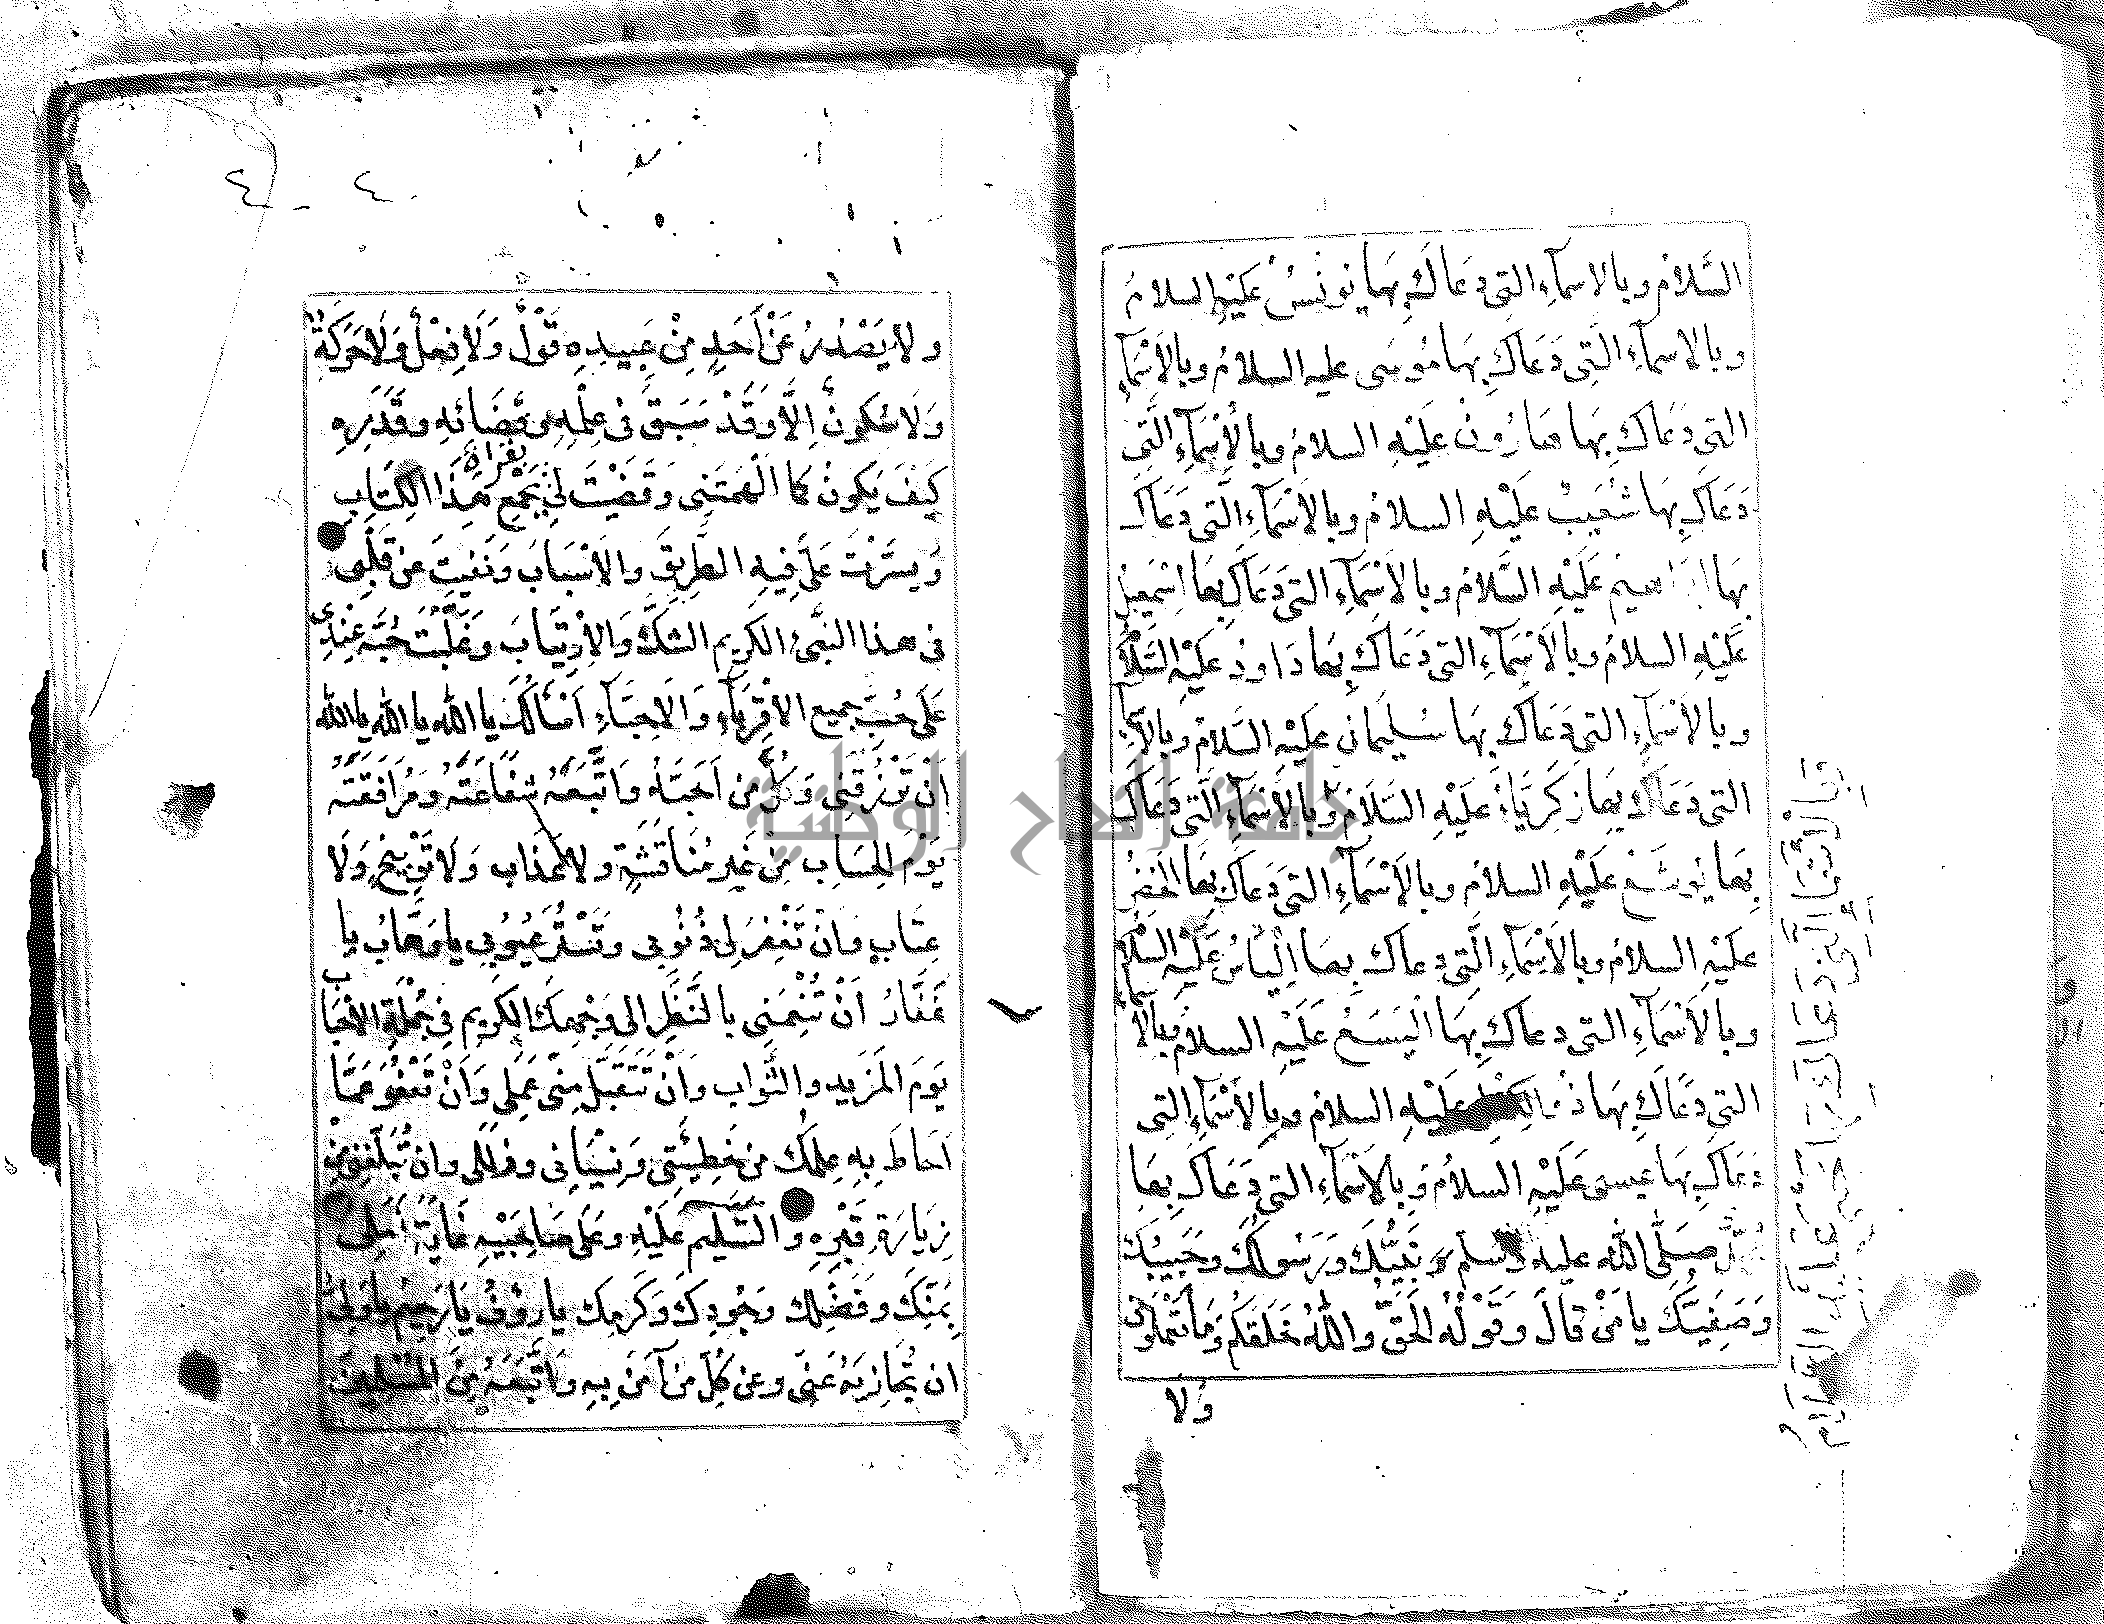 السَّلامُ وبالاسمآءِ التى دَعَاكَ بِهَا يونُسُ عَلَيْهِ السلامُ
وبالاسمآءِ الَّتِى دَعَاكَ بِهَا مُوسَى عليه السلامُ وبالأَسْمَآءِ
التى دَعَاكَ بِهَا هَارُونُ عَلَيْهِ السلامُ وبالأَسْمَآءِ الَّتِى
دَعَاكَ بِهَا شُعَيْبُ عَلَيْهِ السلامُ وبالأَسْمَآءِ الَّتِى دَعَاكَ
بِهَا ابراهيم عَلَيْهِ السَّلامُ وبالأَسْمَآءِ التى دَعَاكَ بِهَا اسْمَعِيلُ
عَلَيْهِ السلامُ وبالأَسْمَآءِ التى دَعَاكَ بِهَا دَاودُ عَلَيْهِ السَّلامُ
وبالأَسْمَآءِ التى دَعَاكَ بِهَا سُلَيمَانُ عَلَيْهِ السَّلامُ وبالأَسْمَآءِ
التى دَعَاكَ بِهَا زَكَرِيَّاءُ عَلَيْهِ السَّلَامُ وبالأَسْمَآءِ الَّتِى دَعَاكَ
بِهَا يُوشَعُ عَلَيْهِ السلامُ وبالأَسْمَآءِ التى دَعَاكَ بِهَا الخَضِرُ
عَلَيْهِ السلامُ وبالأَسْمَآءِ الَّتِى دعاكَ بِهَا اِلْيَاسُ عَلَيْهِ السَّلامُ
وبالأَسْمَآءِ التى دعاكَ بِهَا الْيَسَعُ عَلَيْهِ السلامُ وبالأَسْمَآءِ
التى دَعَاكَ بِهَا ذُو الكفل عَلَيْهِ السلامُ وبالأَسْمَآءِ التِى
دَعَاكَ بِهَا عيسى عَلَيْهِ السلامُ وبالأَسْمَآءِ التى دَعَاكَ بِهَا
مُحَمَّدٌ صَلَّى اللهُ عليه وسلم نَبِيُّكَ وَرَسُولُكَ وحَبِيبُكَ
وَصَفِيُّكَ يامَنْ قَالَ وَقَوْلُهُ الحَقُّ واللهُ خَلَقَكُمْ وَمَا تَعْمَلُونَ
وَلَا
وبالأسمآءِ الَّتِى دَعَاكَ بِهَا
عَلَيْهِ السَّلامُ
٤ - ٤
ولَا يَصْدُرُ عَنْ أَحَدٍ مِنْ عَبِيدِهِ قَوْلٌ وَلَا فِعْلٌ وَلَا حَرَكَةٌ
وَلَا سُكونٌ اِلَّا وَقَدْ سَبَقَ فى عِلْمِهِ وقَضَائهِ وقَدَرِهِ
كَيْفَ يَكونُ كَمَا أَلْهَمْتَنِى وَقَضَيْتَ لِى بِجَمْعِ هَذَا الكِتَابِ
بقراءة
وَيَسَّرْتَ عَلَىَّ فِيهِ الطَّرِيقَ والأَسْبَابَ وَنَفَيْتَ عَنْ قَلْبِى
فى هذا النبىِّ الكَرِيمِ الشَّكَّ وَالاِرْتِيَابَ وَغَلَّبْتَ حُبَّهُ عِنْدِى
عَلَى حُبِّ جميع الأَقْرِبَآءِ وَالأَحِبَّآءِ أَسْأَلُكَ يا اللهُ يا اللهُ يا اللهُ
أَنْ تَرْزُقَنِى وَكُلَّ مَنْ أَحَبَّهُ وَاتَّبَعَهُ شَفَاعَتَهُ وَمُرَافَقَتَهُ
يَوْمَ الحِسَابِ مِنْ غَيْرِ مُنَاقَشَةٍ ولا عَذَابٍ وَلَا تَوْبِيخٍ وَلَا
عِتَابٍ وَأَنْ تَغْفِرَ لِى ذُنُوبِى وَتَسْتُرَ عُيُوبِى يا وَهَّابُ يا
غَفَّارُ أَنْ تُنْعِمَنِى بالنَّظَرِ الى وَجْهِكَ الكَرِيمِ فى جُمْلَةِ الأَحْبَابِ
يَوْمَ المَزِيدِ والثَّوَابِ وَأَنْ تَتَقَبَّلَ مِنِّى عَمَلِى وَأَنْ تَعْفُوَ عَمَّا
أَحَاطَ بِهِ عِلْمُكَ مِنْ خَطِيئَتِى وَنِسْيَانِى وَزَلَلِى وَأَنْ تُبَلِّغَنِى مِنْ
زِيَارَةِ قَبْرِهِ وَالتَّسْلِيمِ عَلَيْهِ وعَلَى صَاحِبَيْهِ غَايَةَ أَمَلِى
بِمَنِّكَ وَفَضْلِكَ وَجُودِكَ وَكَرَمِكَ يا رَوُفُ يا رَحِيمُ يا وَلِىُّ
ان تُجَازِيَهُ عَنِّى وعن كُلِّ مَنْ آمَنَ بِهِ وَاتَّبَعَهُ مِنَ المُسْلِمِينَ
جامعة النجاح الوطنية